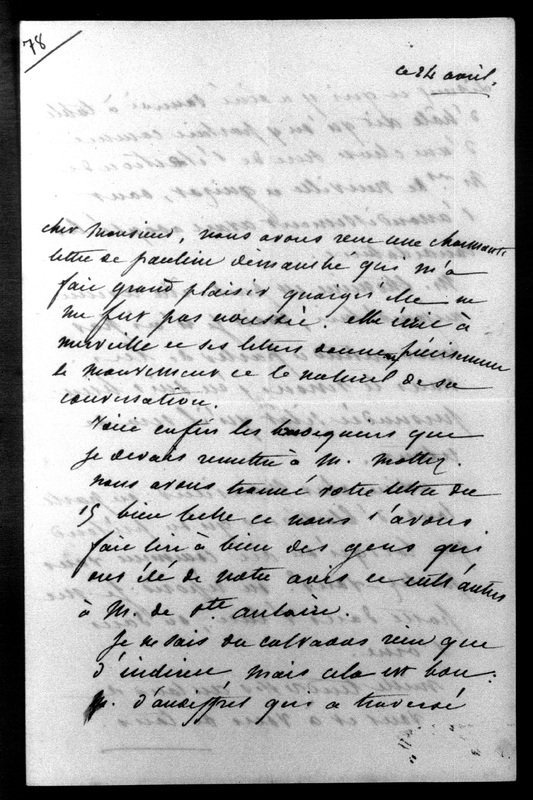 78
ce 24 avril.
cher Monsieur, nous avons reçu une charmante
lettre de pauline dimanche qui m'a
fait grand plaisir quoiqu'elle ne
me fut pas adressée. elle écrit à
merveille et ses lettres donnent précisément
le mouvement et le naturel de sa
conversation.
Voici enfin les que
je devais remettre à M. Mottez.
nous avons trouvé votre lettre du
15 bien belle et nous l'avons
fait lire à bien des gens qui
ont été de notre avis et entr'autres
à M. de Ste. aulaire.
je ne sais du calvados rien que
d'indirect mais cela est bon.
M. d'audiffret qui a traversé